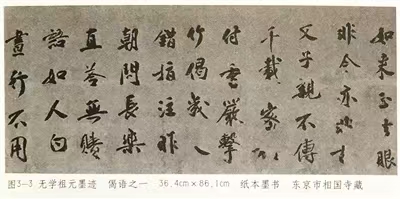 如来正法眼
非今亦非古
父子親不傳
千載密相
付香嚴擊
竹偈幾人
錯指注昨
朝問長樂
直答無賸
語如人向
晝行不用
图3-3 无学祖元墨迹 偈语之一 36.4cm×86.1cm 纸本墨书 东京市相国寺藏